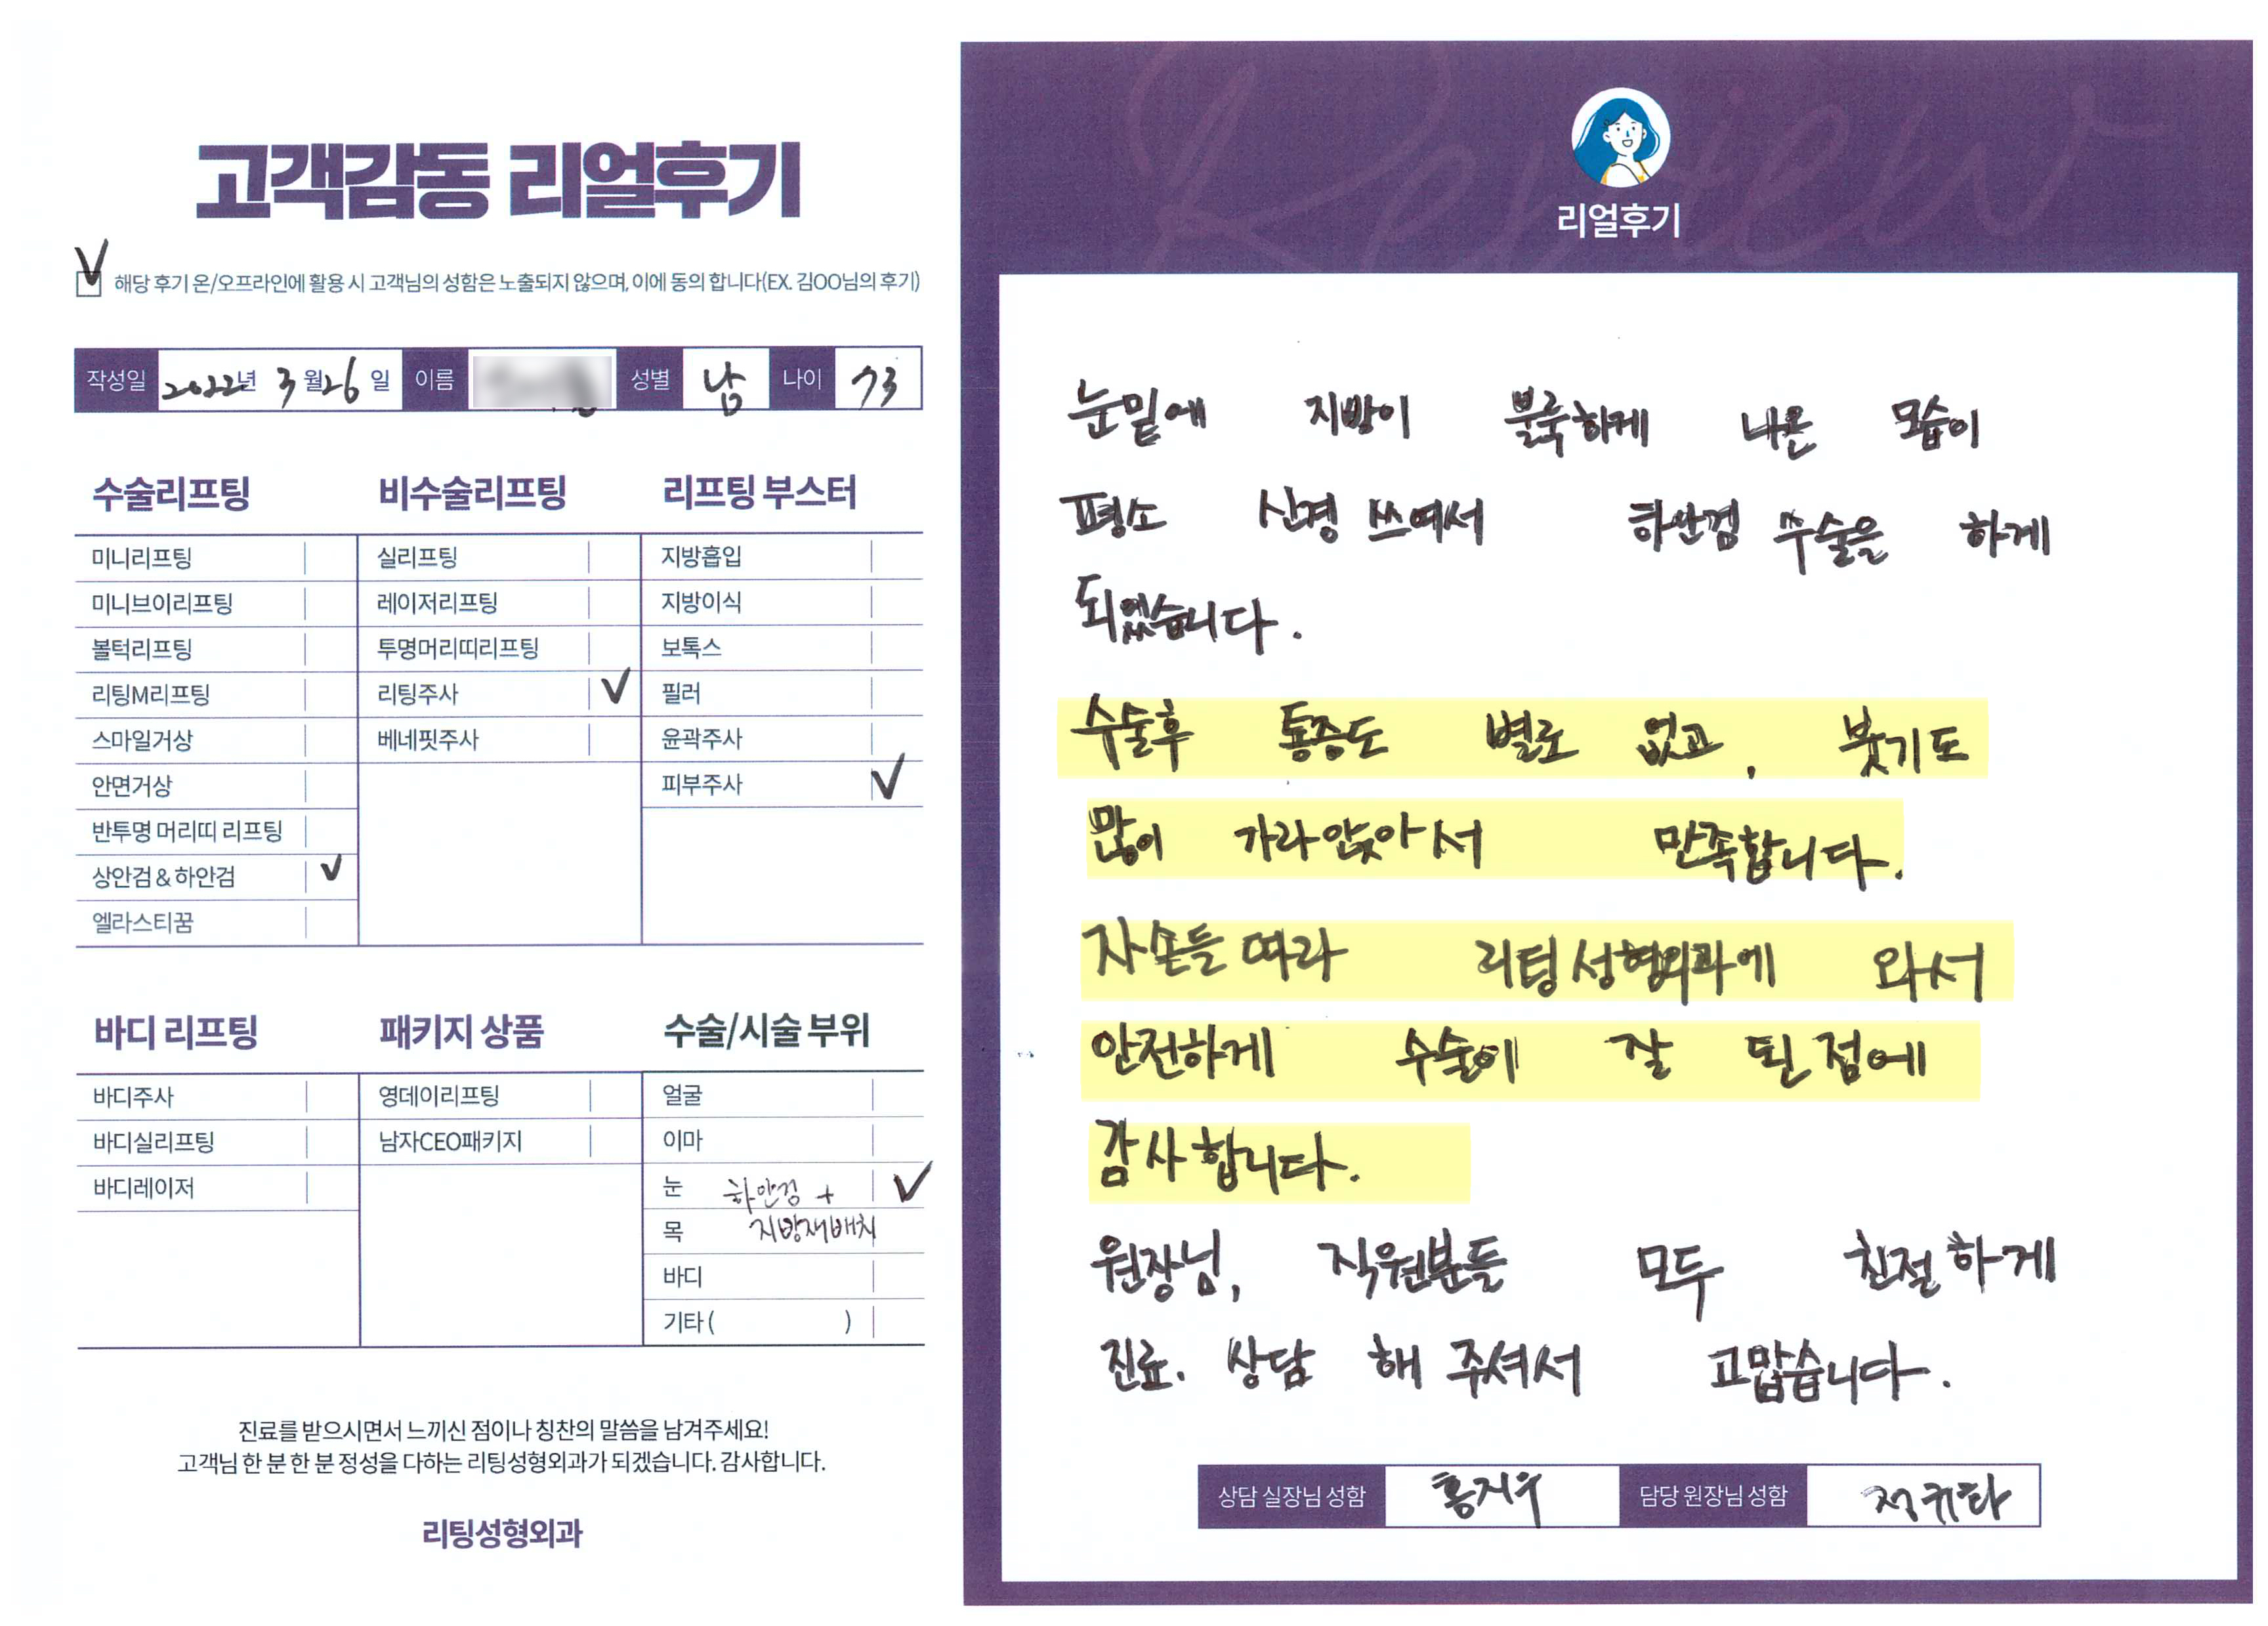 고객감동 리얼후기
해당 후기 온/오프라인에 활용 시 고객님의 성함은 노출되지 않으며, 이에 동의 합니다(EX. 김OO님의 후기)
작성일 2022년 3월 26일 이름 성별 남 나이 73
수술리프팅
미니리프팅
미니브이리프팅
볼턱리프팅
리팅M리프팅
스마일거상
안면거상
반투명 머리띠 리프팅
상안검 & 하안검
엘라스티꿈
비수술리프팅
실리프팅
레이저리프팅
투명머리띠리프팅
리팅주사
베네핏주사
리프팅 부스터
지방흡입
지방이식
보톡스
필러
윤곽주사
피부주사
바디 리프팅
바디주사
바디실리프팅
바디레이저
패키지 상품
영데이리프팅
남자CEO패키지
수술/시술 부위
얼굴
이마
눈 하안검 +
목 지방재배치
바디
기타 ( )
진료를 받으시면서 느끼신 점이나 칭찬의 말씀을 남겨주세요!
고객님 한 분 한 분 정성을 다하는 리팅성형외과가 되겠습니다. 감사합니다.
리팅성형외과
Review
리얼후기
눈밑에 지방이 불룩하게 나온 모습이
평소 신경 쓰여서 하안검 수술을 하게
되었습니다.
수술후 통증도 별로 없고, 붓기도
많이 가라앉아서 만족합니다.
자손들 따라 리팅성형외과에 와서
안전하게 수술이 잘 된 점에
감사합니다.
원장님, 직원분들 모두 친절하게
진료. 상담 해 주셔서 고맙습니다.
상담 실장님 성함 홍지우 담당 원장님 성함